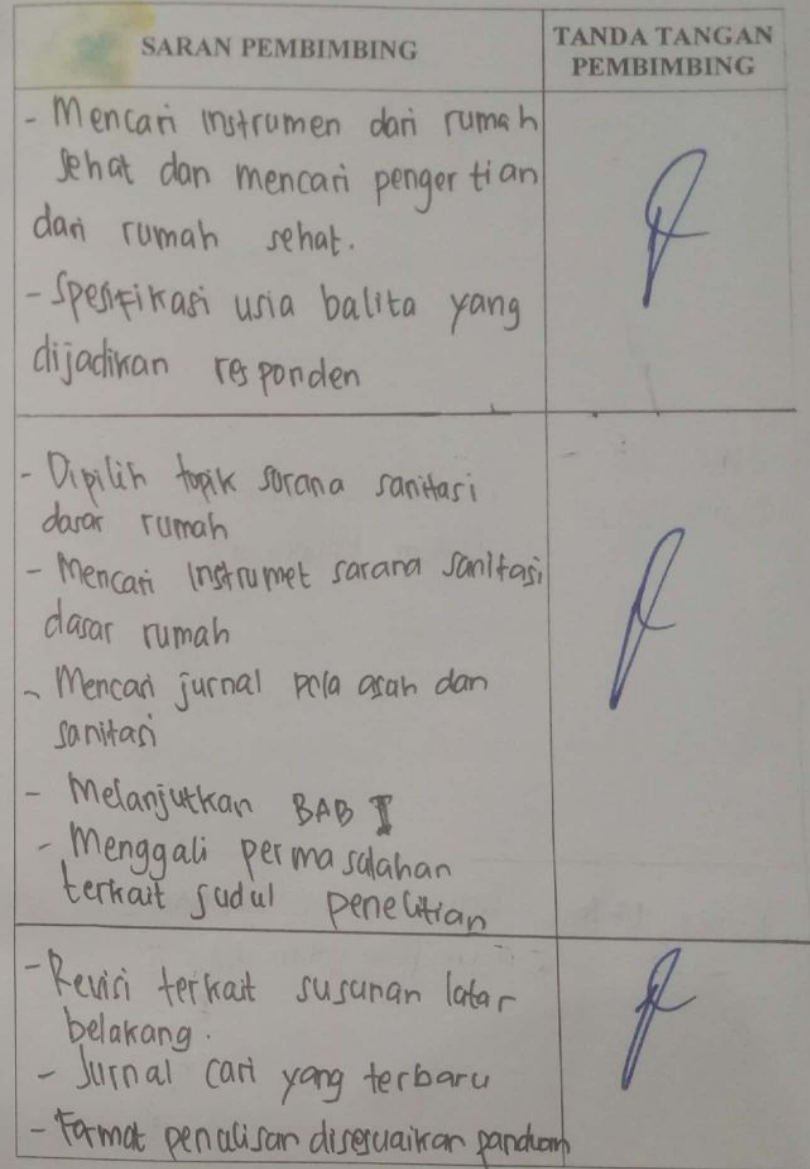 SARAN PEMBIMBING
TANDA TANGAN
PEMBIMBING
- Mencari instrumen dari rumah
sehat dan mencari pengertian
dari rumah sehat.
- Spesifikasi usia balita yang
dijadikan responden
- Dipilih topik sarana sanitasi
dasar rumah
- Mencari Instrumet sarana sanitasi
dasar rumah
- Mencari jurnal pola asah dan
sanitasi
- Melanjutkan BAB I
- Menggali permasalahan
terkait judul penelitian
- Revisi terkait susunan latar
belakang.
- Jurnal cari yang terbaru
- Format penulisan disesuaikan panduan